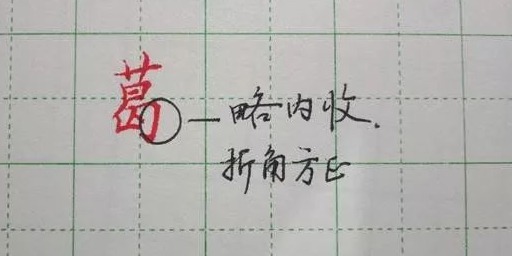 葛 — 略内收.
折角方正